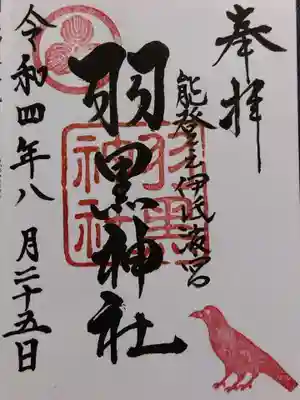 奉拝
能登之伊氏波宮
羽黒神社
羽黒神社
令和四年八月二十五日